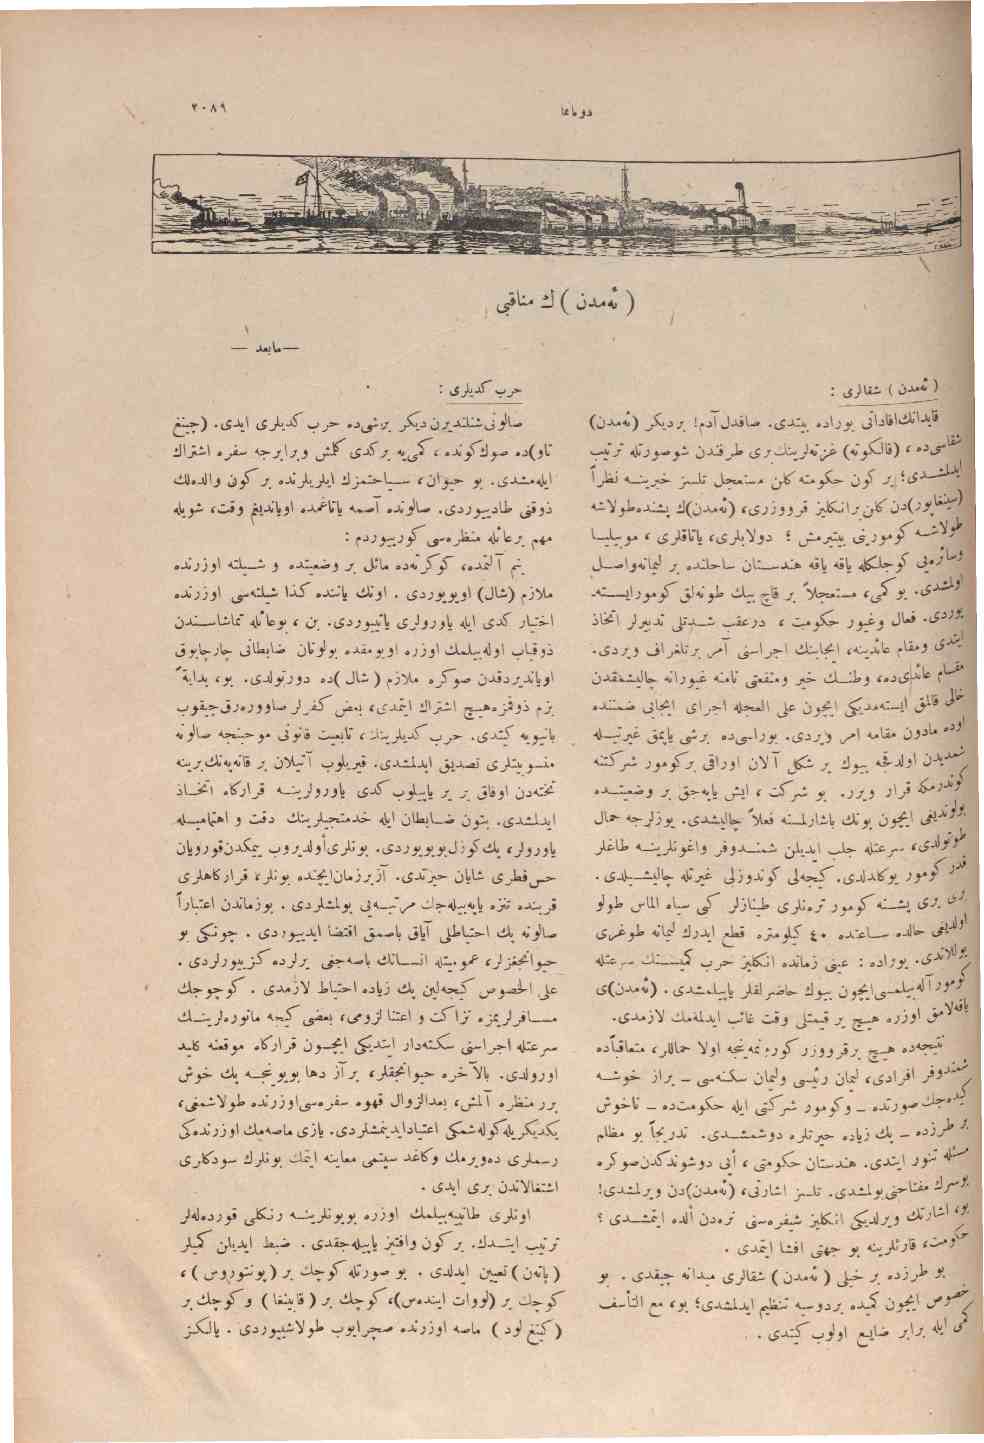 ٢٠٨٩
دونانما
( ئه‌مدن ) ك مناقبی
— مابعد —
( ئه‌مدن ) شقالری :
قاپدانك افاداتی بوراده بیتدی. صافدل آدم! بر دیكر (ئه‌مدن)
شقاسی‌ده ، (قالكوته) غزته‌لرینك بری طرفندن شوصورتله ترتیب
ایدلمشدی؛ بر كون حكومته كلن مستعجل تلسز خبرینـه نظراً
(سینغاپور)دن كلن بر انكلیز قرووزری، (ئه‌مدن)ك پشنده طولاشه
طولاشـه كومورینی بیتیرمش ؛ دولابلری، یاتاقلری ، موبیلیـا
وسائره‌یی كوجلكله یاقه یاقه هندسـتان ساحلنده بر لیمانه واصـل
اولمشدی. بو كمی، مستعجلاً بر قاچ بیك طونه‌لق كومور ایسـته‌
یوردی. فعال وغیور حكومت ، درعقب شـدتلی تدبیرلر اتخاذ
ایتدی ومقام عائدینه، ایجابنك اجراسنی آمر بر تلغراف ویردی.
مقـام عائدی‌ده، وطنـك خیر ومنفعتی نامنه غیورانه چالیشمقدن
خالی قالمق ایسته‌مدیكی ایچون علی العجله اجرای ایجابی ضمننده
اوده مادون مقامه امر ویردی. بوراسی‌ده برشی یاپمق غیرتیـله
شمدیدن اولدقجه بیوك بر شكل آلان اوراقی بر كومور شركتنه
كوندرمكه قرار ویرر. بو شركت ، ایش یاپه‌جق بر وضعیتـده
بولوندیغی ایچون بونك باشارلمسنه فعلاً چالیشدی. یوزلرجه حمال
طوتولدی، سرعتله جلب ایدیلن شمنـدوفر واغونلرینـه طاغلر
قدر كومور یوكلدلدی. كیجه‌لی كوندوزلی غیرتله چالیشـیلدی.
بری بری پشـنه كومور تره‌نلری طینازلر كبی سیاه الماس طولو
اولدیغی حالده سـاعتده ٤٠ كیلومتره قطع ایدرك لیمانه طوغری
یوللاندی. بوراده : عینی زمانده انكلیز حرب كمیسـنك سرعتله
كومور آله‌بیلمسی ایچون بیوك حاضرلقلر یاپیلمشدی. (ئه‌مدن)ی
یاقه‌لامق اوزره هیـچ بر قیمتلی وقت غائب ایدلمه‌مك لازمدی.
نتیجه‌ده هیـچ بر قرووزر كورونمه‌ینجه اولا حماللر، متعاقباًده
شمندوفر افرادی، لیمان رئیسی ولیمان سكنه‌سی – براز خوشـه
كیده‌جك صورتده – وكومور شركتی ایله حكومت‌ده – ناخوش
بر طرزده – پك زیاده حیرتلره دوشمشـدی. تدریجاً بو مظلم
مسئله تنور ایتدی. هندستان حكومتی ، أیی دوشوندكدن صوكره
بوسرك مفتاحنی بولمشدی. تلسز اشارتی، (ئه‌مدن)دن ویرلمشدی!
بو، اشارتك ویرلدیكی انكلیز شیفره‌سنی نره‌دن ألده ایتمشـدی ؟
حكومت، قارئلرینه بو جهتی افشا ایتمدی .
بو طرزده بر خیلی ( ئه‌مدن ) شقالری میدانه چیقدی . بو
خصوص ایچون كمیده بردوسیه تنظیم ایدلمشدی؛ بو، مع التأسف
كمی ایله برابر ضایـع اولوب كیتدی .
حرب كدیلری :
صالونی شنلندیرن دیكر برشی‌ده حرب كدیلری ایدی. (چینغ
تاو)ده صوك كونده ، كمی‌یه بركدی كلمش وبرابرجه سفره اشتراك
ایله‌مشدی. بو حیوان، سـیاحتمزك ایلریلرنده بر كون والده‌لك
ذوقنی طادییوردی. صالونده آصمه یاتاغمده اویاندیغم وقت، شویله
مهم برعائله منظره‌سی كورییوردم :
بنم آلتمده، كوكرته‌ده مائل بر وضعیتده و شـیلته اوزرنده
ملازم (شال) اویویوردی . اونك یاننده كذا شیلته‌سی اوزرنده
اختیار كدی ایله یاورولری یاتییوردی. بن ، بوعائله تماشاسـندن
ذوقیاب اوله‌بیلمك اوزره اویومقده بولونان ضابطانی چارچابوق
اویاندیردقدن صوكره ملازم ( شال )ده دورتولدی. بو، بدایةً
بزم ذوقمزه هیـچ اشتراك ایتمدی، بعض كفرلر صاووره‌رق جیقوب
بانیویه كیتدی. حرب كدیلرینك، تابعیت قانونی موجبنجه صالونه
منسـوبیتلری تصدیق ایدلمشدی. قیریلوب آتیلان بر قانه‌پانك برینه
تخته‌دن اوفاق بر یر یاپیلوب كدی یاورولرینـه قراركاه اتخـاذ
ایدلمشدی. بتون ضـابطان ایله خدمتجیلرینك دقت و اهتمامیـله
یاورولر، پك كوزل بویویوردی. بونلری أولدیروب ییمكدن قورویان
حس فطری شایان حیرتدی. آز بر زمان ایچنده بونلر، قراركاهلری
قربنده تنزه یاپه‌بیله‌جك مرتبـه‌یی بولمشلردی . بوزماندن اعتباراً
صالونه پك احتیاطلی آیاق باصمق اقتضا ایدییوردی . چونكی بو
حیوانجغزلر، عمومیتله انسـانك باصه‌جغی یرلرده كزییورلردی .
علی الخصوص كیجه‌لین پك زیاده احتیاط لازمدی . كوچوجك
مسـافرلریمزه نزاكت و اعتنا لزومی، بعضی كیجه مانوره‌لرینـك
سرعتله اجراسنی سكته‌دار ایتدیكی ایچـون قراركاه موقعنه كلید
اورولدی. بالآخره حیوانجقلر، برآز دها بویوینجـه پك خوش
برر منظره آلمش، بعدالزوال قهوه سفره‌سی اوزرنده طولاشمغی،
یكدیكریله كوله‌شمكی اعتیاد ایدینمشلردی. یازی ماصه‌مك اوزرنده‌كی
رسملری ده‌ویرمك وكاغد سپتمی معاینه ایتمك بونلرك سودكاری
اشتغالاتدن بری ایدی .
اونلری طانییه‌بیلمك اوزره بویونلرینـه رنكلی قورده‌له‌لر
ترتیب ایتـدك. بر كون وافتیز یاپیله‌جقدی . ضبط ایدیلن كمیلر
(پانه‌ن) تعیین ایدلدی . بو صورتله كوچك بر (پونتوروس ) ،
كوچك بر (لووات اینده‌س)، كوچك بر ( قابینغا ) و كوچك بر
( كینغ لود ) ماصه اوزرنده صچرایوب طولاشییوردی . یالكز